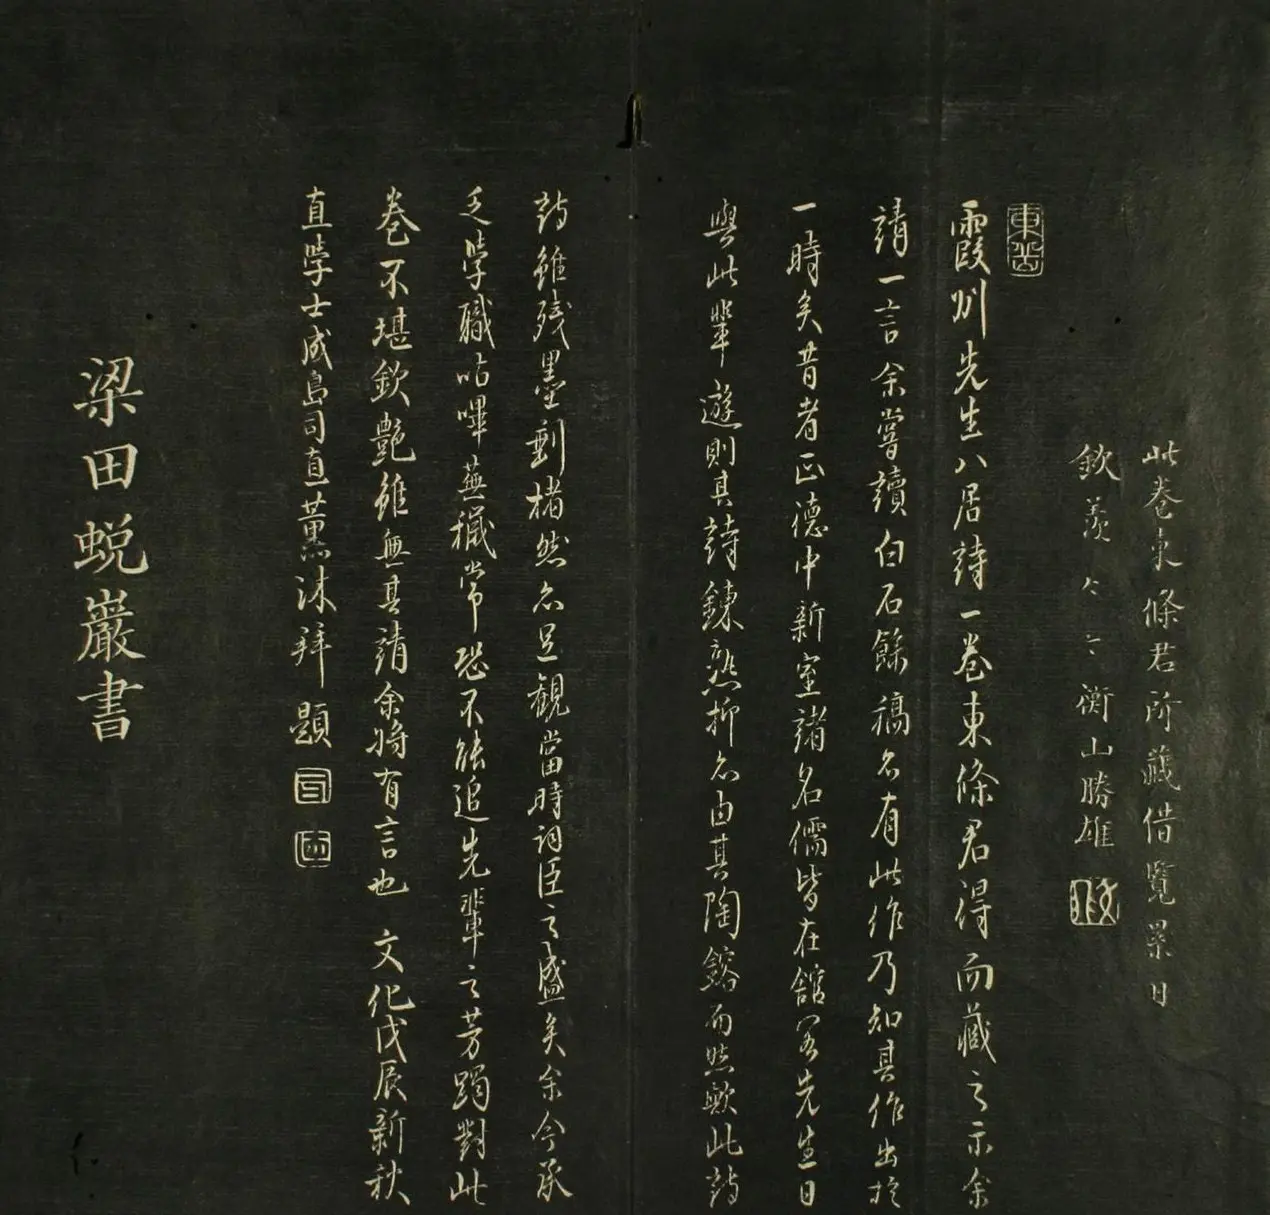 此卷東條君所藏借覽累日
欽羨々々衡山勝雄
霞州先生八居詩一卷東條君得而藏之示余
請一言余嘗讀白石餘稿名有此作乃知其作出於
一時矣昔者正德中新室諸名儒皆在館署先生日
與此輩遊則其詩鍊熟抑亦由其陶鎔而然歟此詩
雖殘墨剩楮然亦足觀當時詞臣之盛矣余今承
乏學職呫嗶蕪穢常恐不能追先輩之芳躅對此
卷不堪欽艷雖無其請余將有言也 文化戊辰新秋
直學士成島司直薰沐拜題
梁田蛻巖書